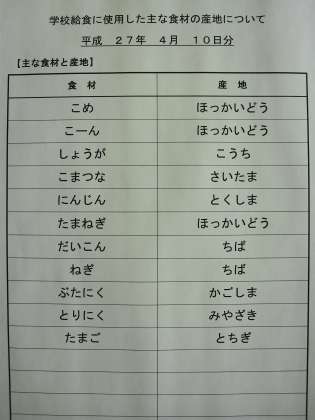 学校給食に使用した主な食材の産地について
平成　２７年　４月　１０日分
【主な食材と産地】
食　材　産　地
こめ　ほっかいどう
こーん　ほっかいどう
しょうが　こうち
こまつな　さいたま
にんじん　とくしま
たまねぎ　ほっかいどう
だいこん　ちば
ねぎ　ちば
ぶたにく　かごしま
とりにく　みやざき
たまご　とちぎ